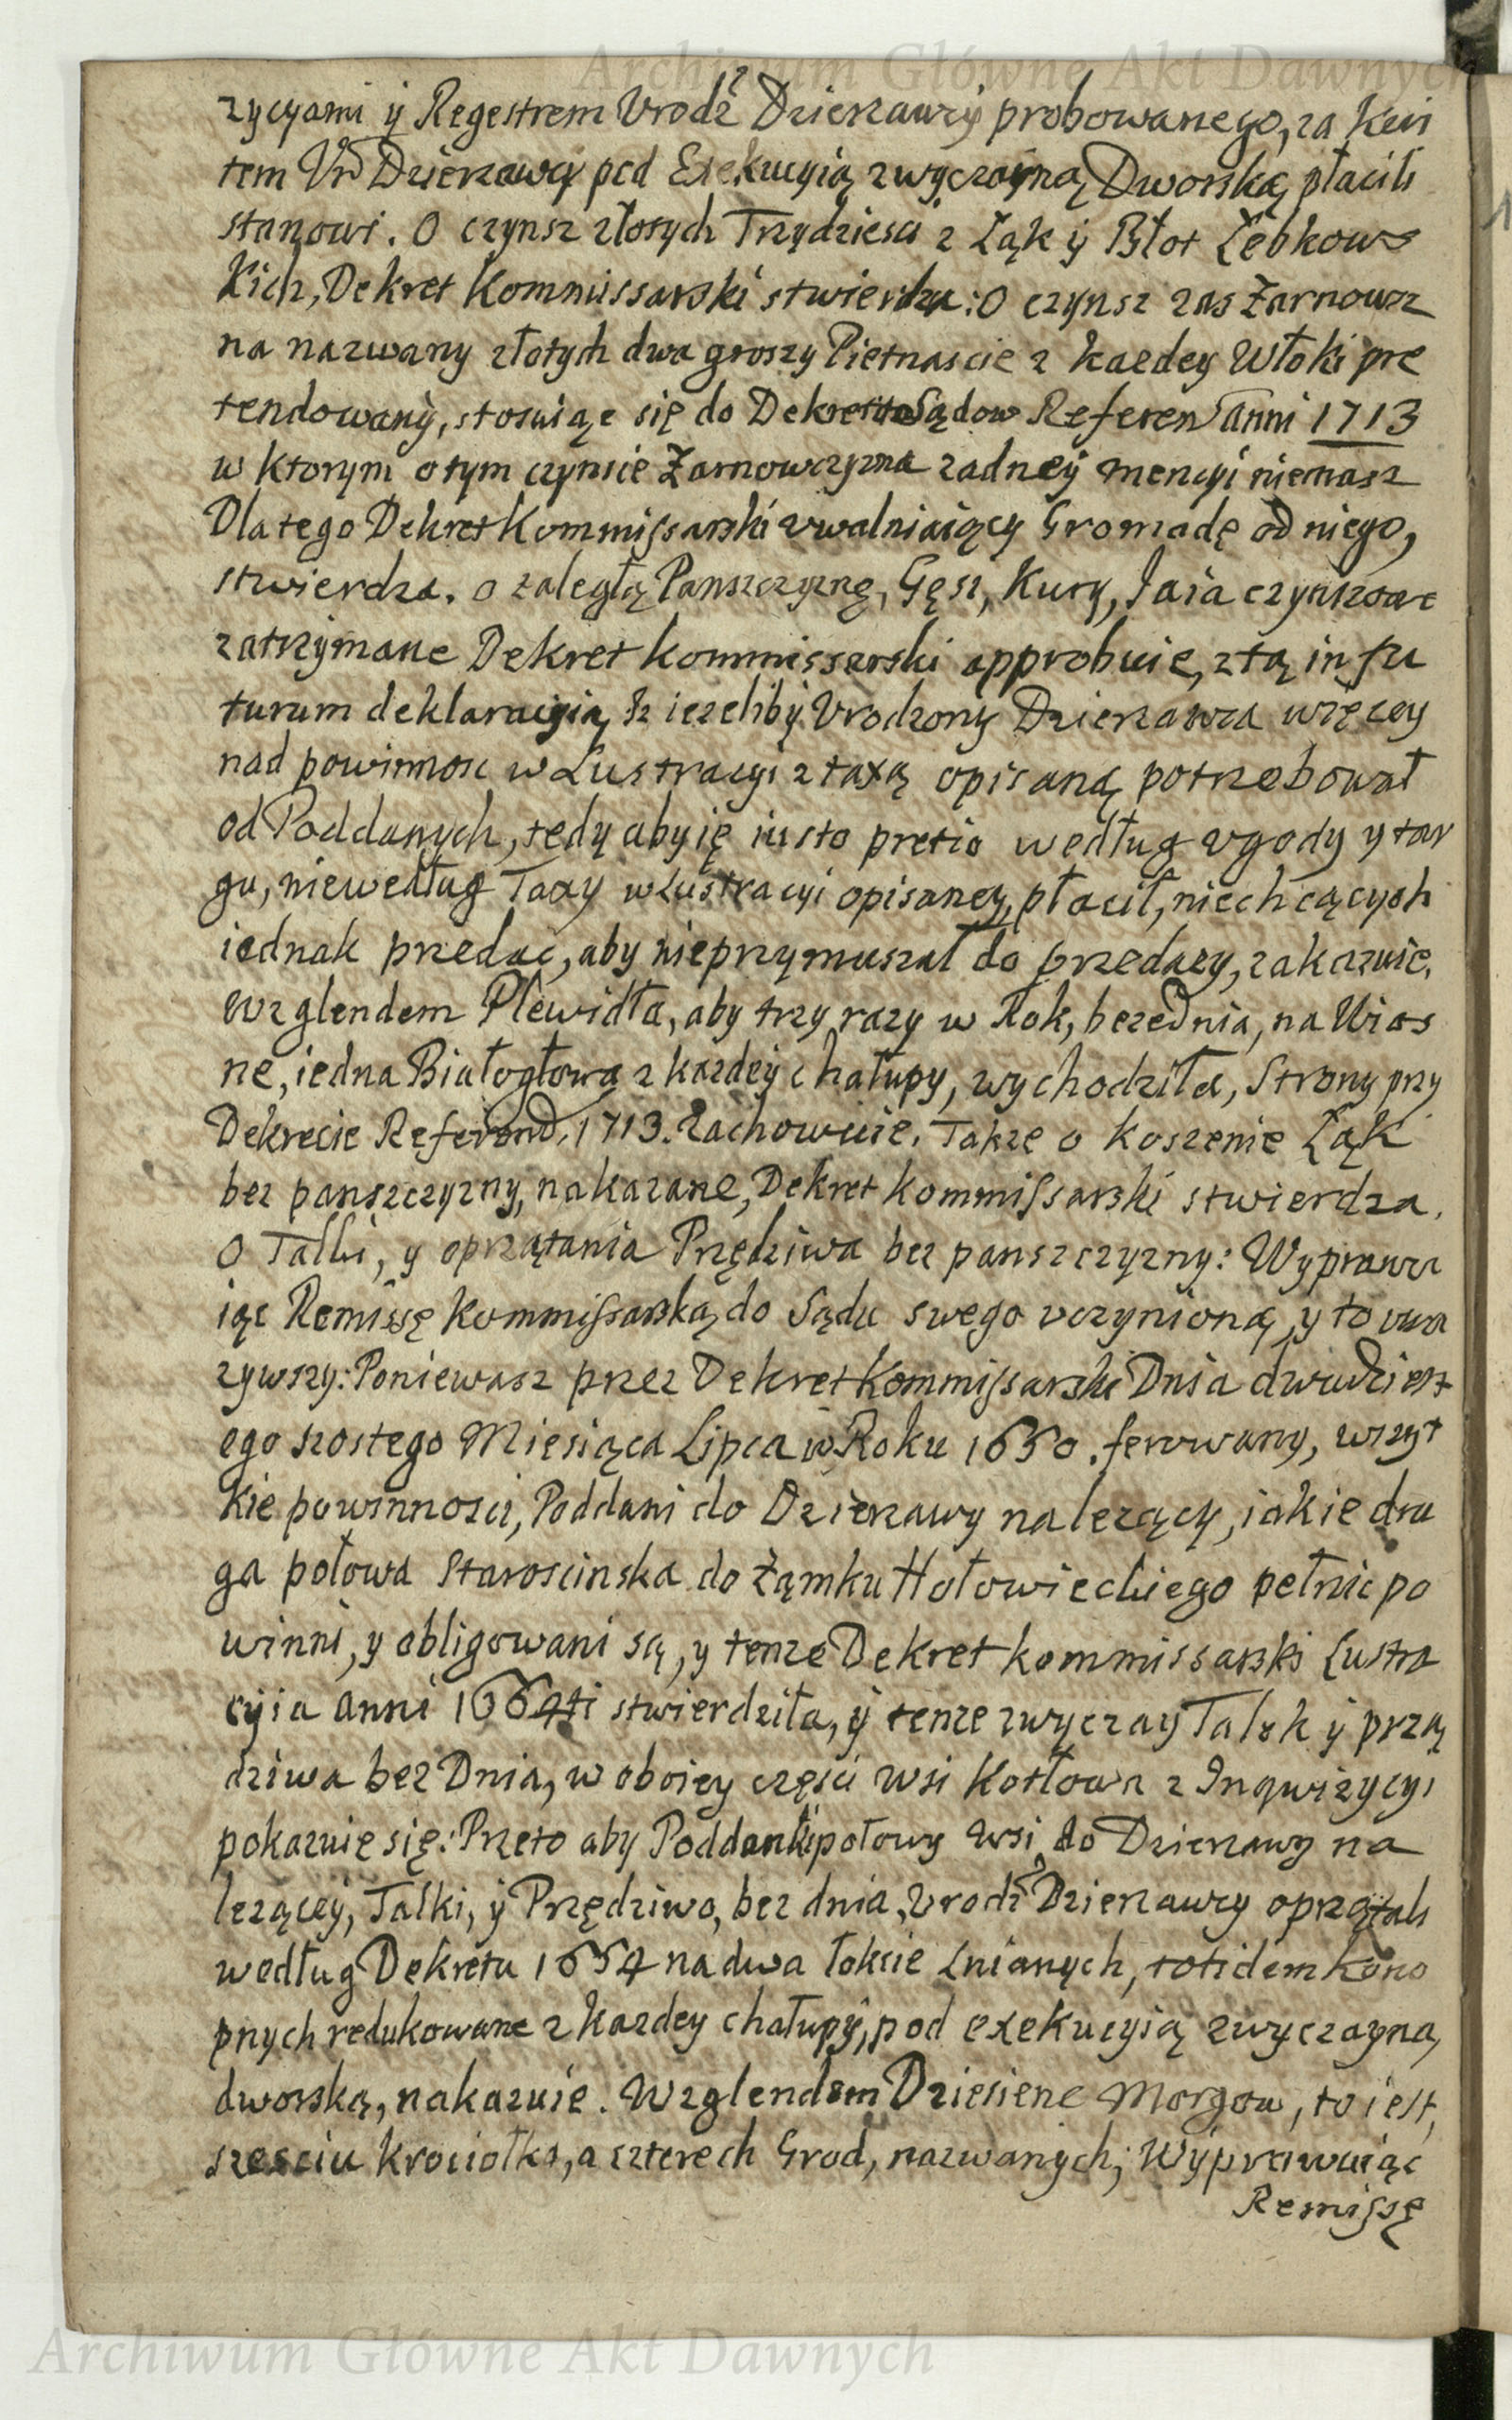 Archiwum Główne Akt Dawnych
zycyami ÿ Regestrem Vrodz Dzierzawcÿ probowanego, za Kwi
tem Vr Dzierzawcy pod Exekucyią zwyczayną Dworską płacili
stanowi. O czynsz złotych Trzydziesci z Łąk ÿ Błot Łebkows
kich, Dekret Kommissarski stwierdza: O czynsz zas Żarnowcz
na nazwany złotych dwa groszy Pietnascie z kazdey Włoki pre
tendowanÿ, stosuiąc się do Dekretu Sądow Referen Anni 1713
w ktorym o tym czynsie Żarnowczyzna zadneÿ mencyi niemasz
Dlatego Dekret Kommissarski vwalniaiący Gromadę od niego,
stwierdza. o zaległą Panszczyznę, Gęsi, Kury, Jaia czynszowe
zatrzÿmane Dekret Kommissarski approbuie, z tą in fu
turum deklaracyią, Iz iezeliby Vrodzony Dzierzawca więcey
nad powinnosc w Lustracyi z taxą opisaną potrzebował
od Poddanych, tedy aby ię iusto pretio według vgody y tar
gu, nie według Taxy w Lustracyi opisaney, płacił, niechcących
iednak przedac, aby nieprzymuszał do przedazy, zakazuie.
Wzglendem Plewidła, aby trzy razy w Rok, bezednia, na Wios
ne, iedna Białogłowa z kazdeÿ chałupy, wychodziła, Strony przy
Dekrecie Referend. 1713. Zachowuie. Takze o koszenie Łąk
bez panszczyzny, nakazane, Dekret Kommissarski stwierdza.
O Talki, y oprzątania Przędziwa bez panszczyzny: Wyprawu
iąc Remissę Kommissarską do Sądu swego vczynioną, y to vwa
zywszy: Poniewasz przez Dekret Kommissarski Dnia dwudziest
ego szostego Miesiąca Lipca w Roku 1650. ferowany, wszyt
kie powinnosci, Poddani do Dzierzawy nalezący, iakie dru
ga połowa Staroscinska do Zamku Hołowieckiego pełnic po
winni, y obligowani są, y tenze Dekret kommissarski Lustra
cyia Anni 1664ti stwierdziła, ÿ tenze zwyczay Talek ÿ przą
dziwa bez Dnia, w oboiey części wsi Kotłowa z Inqwizycyi
pokazuie się: Przeto aby Poddanki połowy wsi, do Dzierzawy na
lezącey, Talki, ÿ Przędziwo, bez dnia, Vrodz Dzierzawcy oprzątali
według Dekretu 1654 na dwa łokcie Lnianych, totidem kono
pnych redukowane z kazdey chałupÿ, pod exekucyią zwyczayną,
dworską, nakazuie. Wzglendem Dziesiene Morgow, to iest,
szesciu Krociołka, a szterech Grod, nazwanych; Wÿprawuiąc
Remissę
Archiwum Główne Akt Dawnych